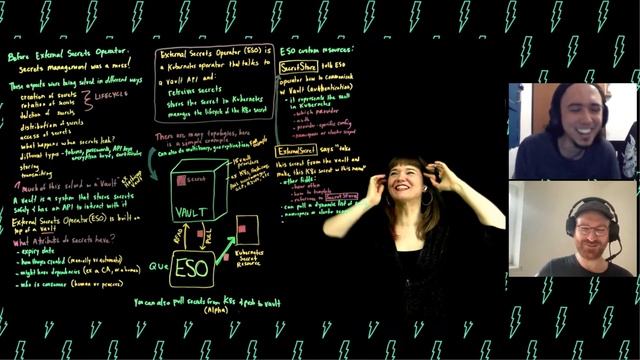 Before External Secrets Operator,
secrets management was a mess!
These aspects were being solved in different ways
creation of secrets
rotation of secrets
deletion of secrets
LIFECYCLE
distribution of secrets
access of secrets
what happens when secrets leak?
different types - tokens, passwords, API keys
encryption keys, certificates
storing
transmitting
much of this solved w a "Vault"
A vault is a system that stores secrets
safely & has an API to interact with it
External Secrets Operator (ESO) is built on
top of a vault
What attributes do secrets have?
- expiry date
- how they're created (manually vs automated)
- might have dependencies (ex a CA, or a human)
- who is consumer (human or process)
External Secrets Operator (ESO) is
a Kubernetes operator that talks to
a Vault API and:
retrieves secrets
stores the secret in Kubernetes
manages the lifecycle of the K8s secret
There are many topologies, here is a
sample concepts
Can also do multitenancy
secret
VAULT
PULL
ESO
Kubernetes
Secret
Resource
You can also pull secrets from K8s & push to vault
(Alpha)
ESO custom resources:
SecretStore tells ESO
operator how to communicate
w Vault (authentication)
- it represents the vault
in Kubernetes
- which provider
- auth
- provider-specific config
- namespace or cluster scoped
ExternalSecret says "take
this secret from the vault and
make this K8s secret w this name"
- other fields:
- how often
- referring to SecretStore
- can pull a dynamic list of
- namespace or cluster